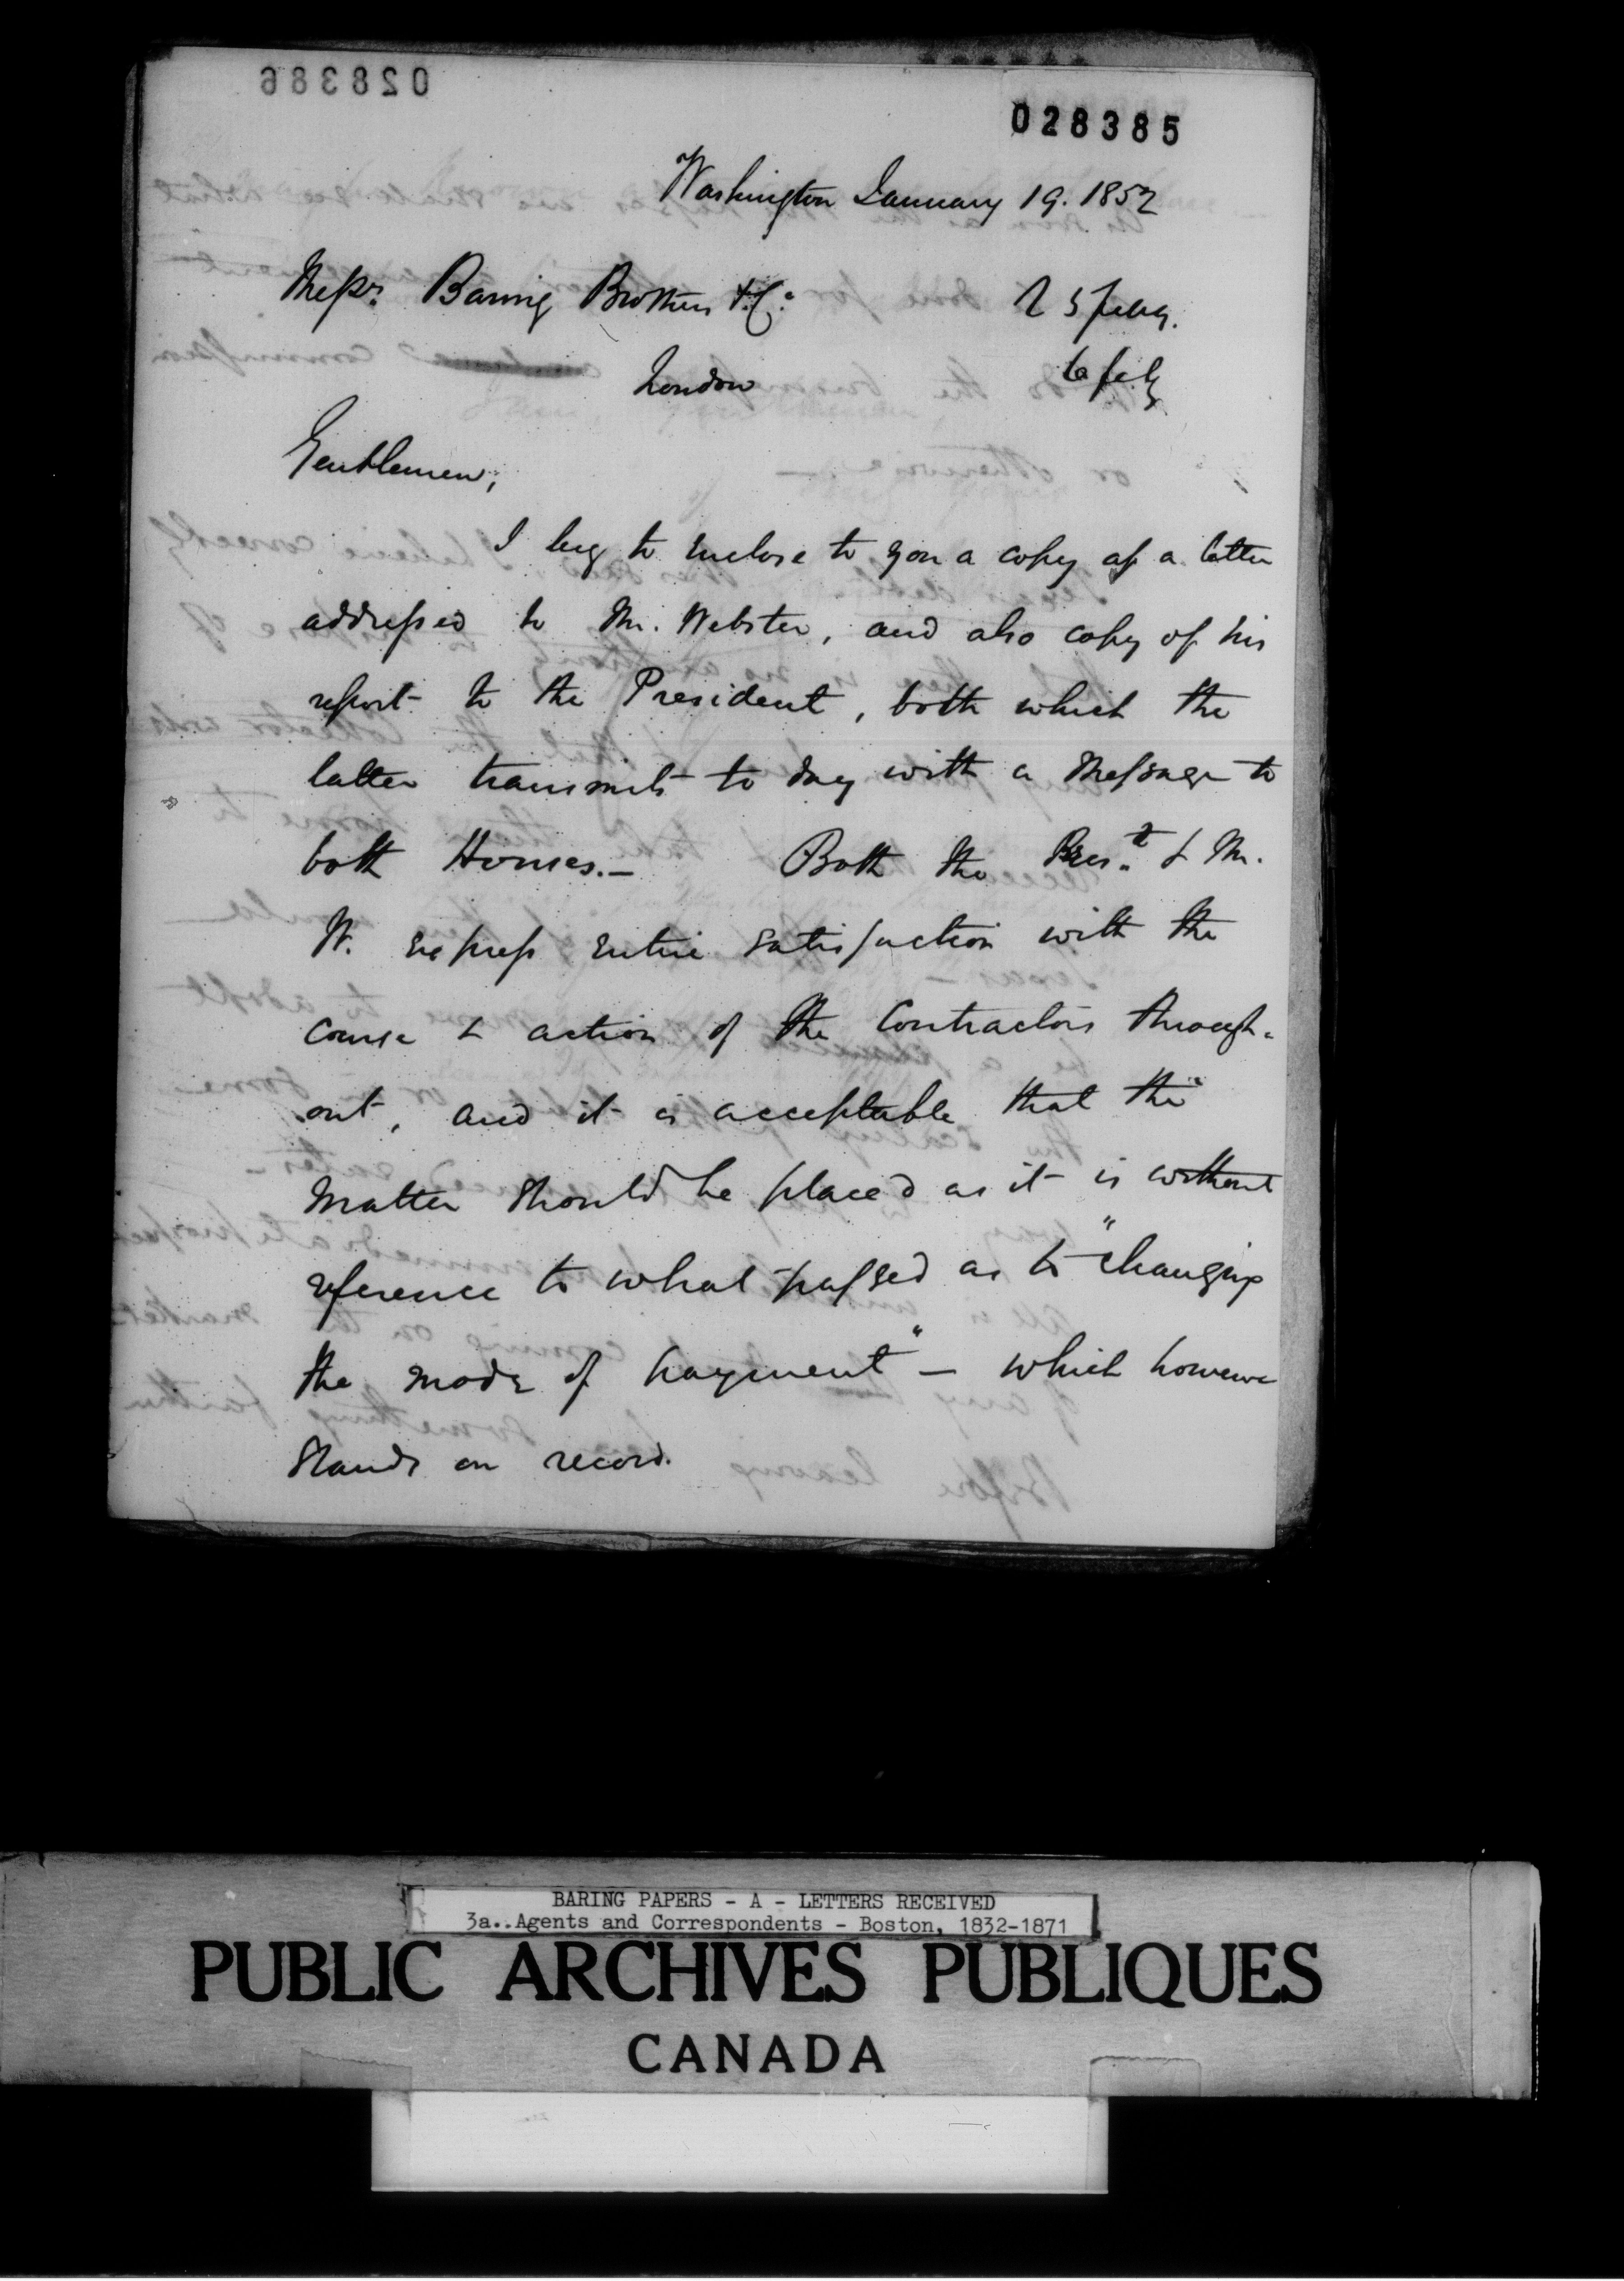 028386
028385
Washington January 19. 1852
Messrs. Baring Brothers & Co.
London
5 Feby.
6 feby
Gentlemen,
I beg to enclose to you a copy of a letter
addressed to Mr. Webster, and also copy of his
report to the President, both which the
latter transmits to day with a Message to
both Houses.— Both the Pres.t & Mr.
W. express entire satisfaction with the
course & action of the Contractors through-
out, and it is acceptable that the
matter should be placed as it is without
reference to what passed as to "changing
the mode of payment" — which however
stands on record.
BARING PAPERS - A - LETTERS RECEIVED
3a..Agents and Correspondents - Boston, 1832-1871
PUBLIC ARCHIVES PUBLIQUES
CANADA